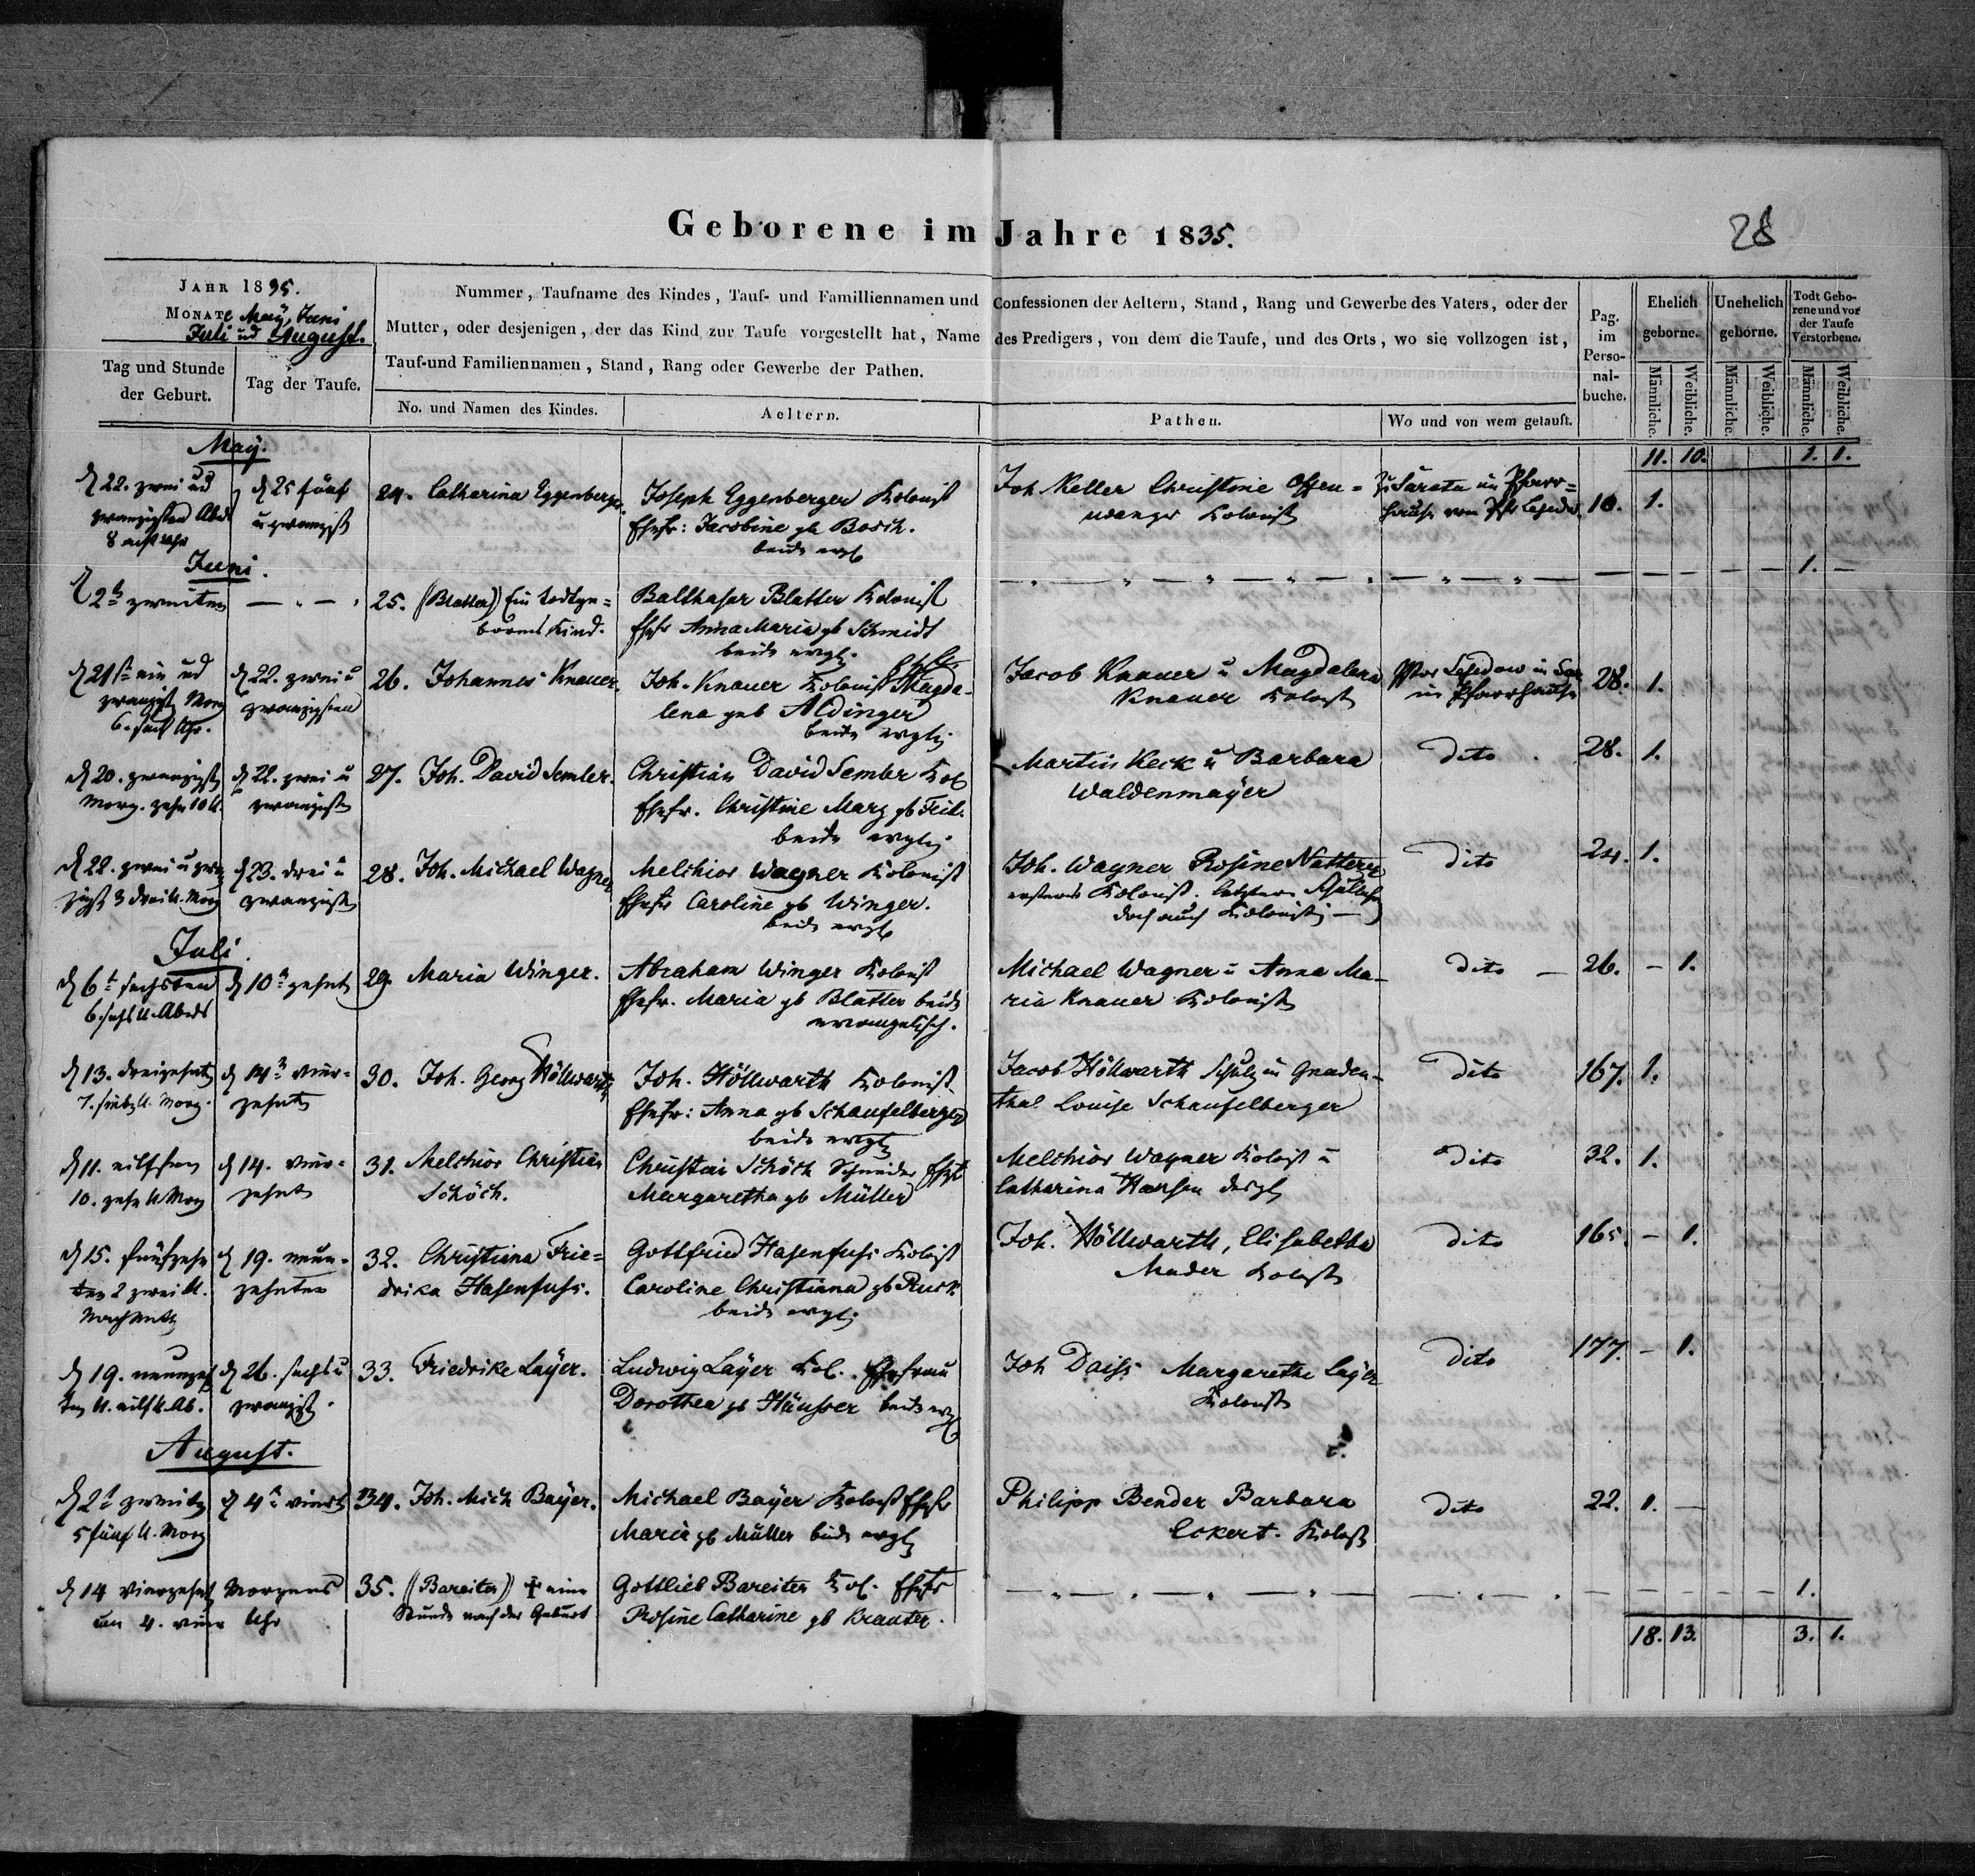 Geborene im Jahre 1835.
28
Jahr 1835.
Monate May, Juni
Juli und August.
Tag und Stunde der Geburt.
Tag der Taufe.
Nummer, Taufname des Kindes, Tauf- und Familliennamen und Confessionen der Aeltern, Stand, Rang und Gewerbe des Vaters, oder der
Mutter, oder desjenigen, der das Kind zur Taufe vorgestellt hat, Name des Predigers, von dem die Taufe, und des Orts, wo sie vollzogen ist,
Tauf-und Familiennamen, Stand, Rang oder Gewerbe der Pathen.
No. und Namen des Kindes.
Aeltern.
Pathen.
Wo und von wem getauft.
Pag. im Perso-nal-buche.
Ehelich geborne.
Unehelich geborne.
Todt Gebo-rene und vor der Taufe Verstorbene.
Männliche. Weibliche. Männliche. Weibliche. Männliche. Weibliche.
11. 10. 1. 1.
May.
d 22. zwei und
zwanzigsten Abds
8 acht Uhr
d 25 fünf
u zwanzigst
24. Catharina Eggenberger.
Joseph Eggenberger Kolonist
Ehefr: Jacobine gb Bosch.
beide evgl
Joh Keller Christine Offen=
wanger Kolonist
Zu Sarata im Pfarr=
hause
10. 1.
Juni.
2t zweiten
25. (Blatter) Ein todtge=
bornes Kind.
Balthasar Blatter Kolonist
Ehefr Anna Maria gb Schmidt
beide evgl.
1.
d 21st ein und
zwanzigst Morg
6. sechs Uhr.
d 22. zwei u
zwanzigsten
26. Johannes Knauer.
Joh. Knauer Kolonist Ehefr. Magda-
lena geb Aldinger
beide evgl
Jacob Knauer u Magdalena
Knauer Kolonist
im Pfarrhause
28. 1.
d 20. zwanzigst
Morg. zehn 10 U.
d 22. zwei u
zwanzigst
27. Joh. David Semler.
Christian David Semler Kol
Ehefr. Christine Marg gb
beide evgl
Martin Keck u Barbara
Waldenmayer
dito
28. 1.
d 22. zwei u zwan
zigst 3 drei U. Morg
d 23. drei u
zwanzigst
28. Joh. Michael Wagner
Melchior Wagner Kolonist
Ehefr Caroline gb Winger.
beide evgl
Joh. Wagner Rosine Natterer
ersterer Kolonist. letztere
doch auch
dito
24. 1.
Juli.
d 6t sechsten
6. sechs U. Abds
d 10t zehnt
29. Maria Winger.
Abraham Winger Kolonist
Ehefr. Maria gb Blatter beide
evangelisch.
Michael Wagner u Anna Ma-
ria Knauer Kolonist
dito
26. 1.
d 13. dreizehnt
7. sieb U. Morg.
d 14t vier-
zehnt
30. Joh. Georg Höllwarth
Joh. Höllwarth Kolonist
Ehefr: Anna gb Schaufelberger
beide evgl
Jacob Höllwarth Schulz in Gnaden-
thal Louise Schaufelberger
dito
167. 1.
d 11. eilften
10. zehn U. Morg
d 14. vier-
zehnt
31. Melchior Christian
Schöch.
Christian Schöch Schneider Ehefr
Margaretha gb Müller
Melchior Wagner Kolonist u
Catharina Hansen
dito
32. 1.
d 15. fünfzehn
ten 2 zwei U.
d 19. neun-
zehnten
32. Christiana Frie=
drika Hasenfuhs.
Gottfried Hasenfuhs Kolonist
Caroline Christiana gb Ruck
beide evgl.
Joh. Höllwarth, Elisabetha
Mader Kolonist
dito
165. 1.
d 19. neunzeh
ten
d 26. sechs u
zwanzigst.
33. Friedrike Layer.
Ludwig Layer Kol. Ehefrau
Dorothea gb Häusser beide evgl
Joh Daiss Margarethe Layer
Kolonist
dito
177. 1.
August.
d 2t zweite
5 fünf U. Morg
d 4t viert
34. Joh. Mich Bayer.
Michael Bayer Kolonist Ehefr
Maria gb Müller beide evgl
Philipp Bender Barbara
Eckert. Kolonist
dito
22. 1.
d 14 vierzehnt Morgens
um 4. vier Uhr
35. (Bareiter) † eine
Stunde nach der Geburt
Gottlieb Bareiter Kol. Ehefr
Rosine Catharine gb Krauter.
1.
18. 13. 3. 1.